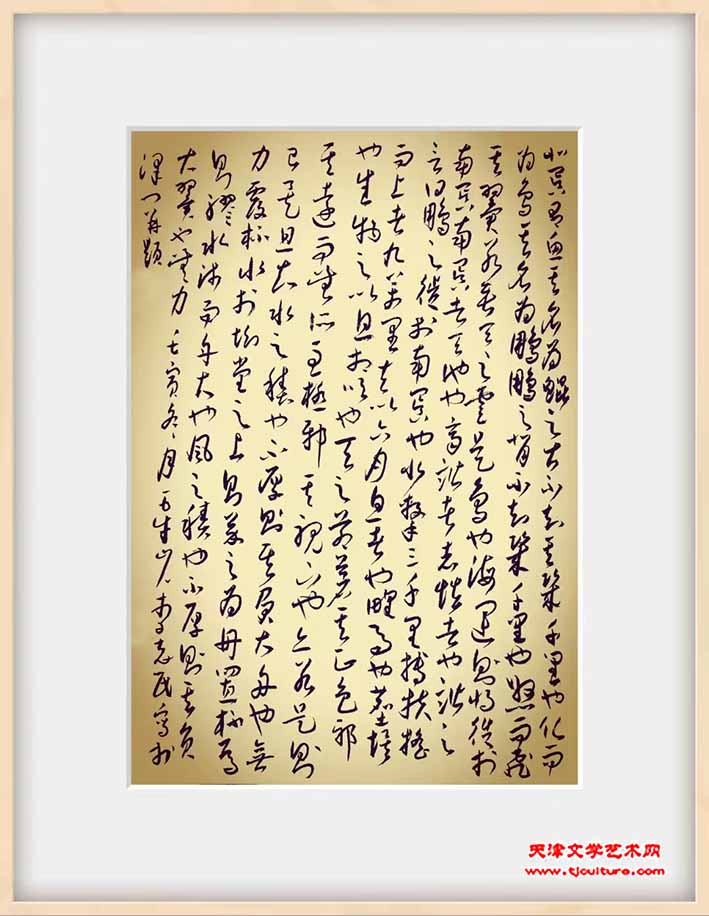 北冥有魚其名為鯤之大不知其幾千里也化而
為鳥其名為鵬鵬之背不知幾千里也怒而飛
其翼若垂天之雲是鳥也海運則將徙於
南冥南冥者天池也齊諧者志怪者也諧之
言曰鵬之徙於南冥也水擊三千里摶扶搖
而上者九萬里去以六月息者也野馬也塵埃
也生物之以息相吹也天之蒼蒼其正色邪
其遠而無所至極邪其視下也亦若是則
已矣且夫水之積也不厚則其負大舟也無
力覆杯水於坳堂之上則芥之為舟置杯焉
則膠水淺而舟大也風之積也不厚則其負
大翼也無力 壬寅冬月 李志民寫於
津門并題
天津文学艺术网
www.tjculture.com